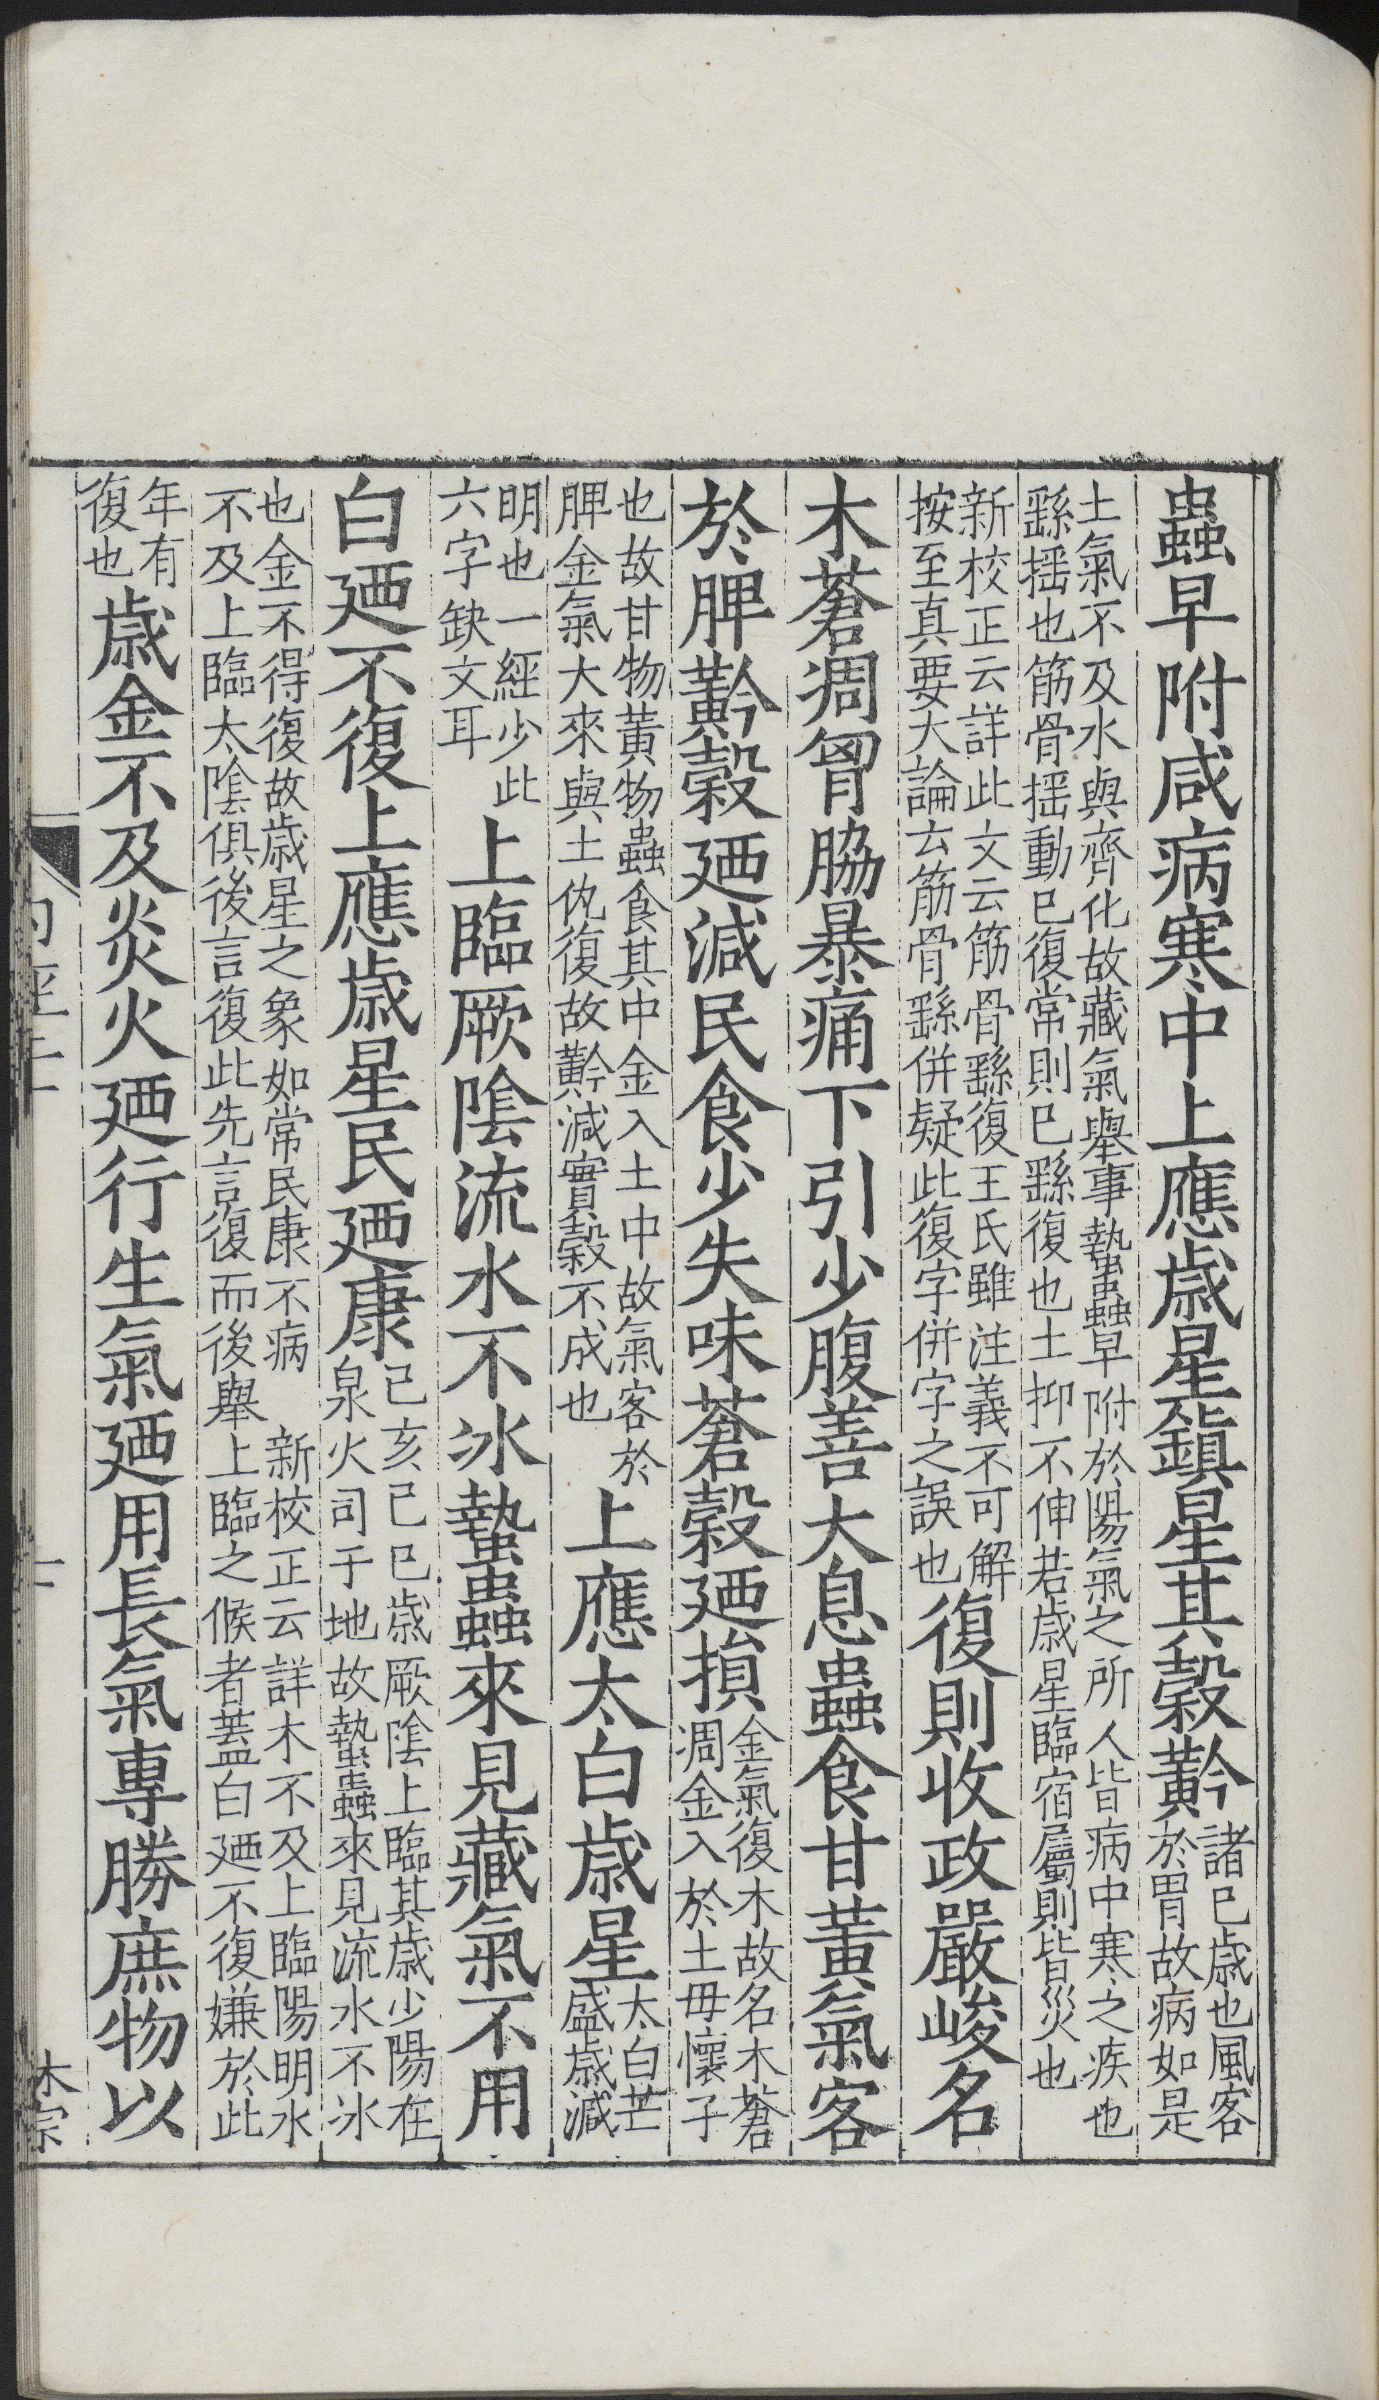 蟲早附咸病寒中上應歳星鎮星其穀黅諸巳歳也風客
於胃故病如是
土氣不及水與齊化故藏氣舉事蟄蟲早附於陽氣之所人皆病中寒之疾也
繇揺也筋骨揺動已復常則已繇復也土抑不伸若歳星臨宿屬則皆災也
新校正云詳此文云筋骨繇復王氏雖注義不可解
按至真要大論云筋骨繇併疑此復字併字之誤也
復則收政嚴峻名
木蒼凋胷脇暴痛下引少腹善大息蟲食甘黃氣客
於脾黅穀廼減民食少失味蒼穀廼損金氣復木故名木蒼
凋金入於土毋懷子
也故甘物黃物蟲食其中金入土中故氣客於
脾金氣大來與土仇復故黅減實穀不成也
上應太白歳星太白芒
盛歳減
明也一經少此
六字缺文耳
上臨厥隂流水不冰蟄蟲來見藏氣不用
白廼不復上應歳星民廼康己亥己巳歳厥隂上臨其歳少陽在
泉火司于地故蟄蟲來見流水不冰
也金不得復故歳星之象如常民康不病　新校正云詳木不及上臨陽明水
不及上臨太隂俱後言復此先言復而後舉上臨之候者蓋白廼不復嫌於此
年有
復也
歳金不及炎火廼行生氣廼用長氣專勝庶物以